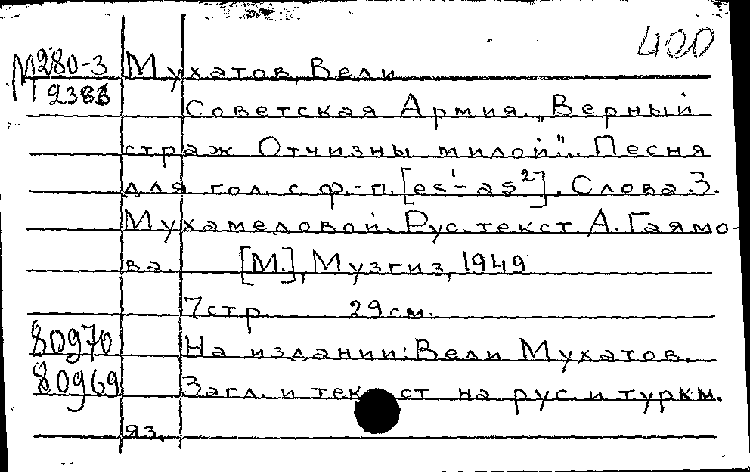 400
М 280-3 Мухатов, Вели
2388 Советская Армия. „Верный
страж Отчизны милой". Песня
для гол. с ф.-п. [es¹-as²]. Слова З.
Мухамедовой. Рус. текст А. Гаямо-
ва. [М.], Музгиз, 1949
7 стр. 29 см.
80970 На издании: Вели Мухатов.
80969 Загл. и текст на рус. и туркм.
яз.